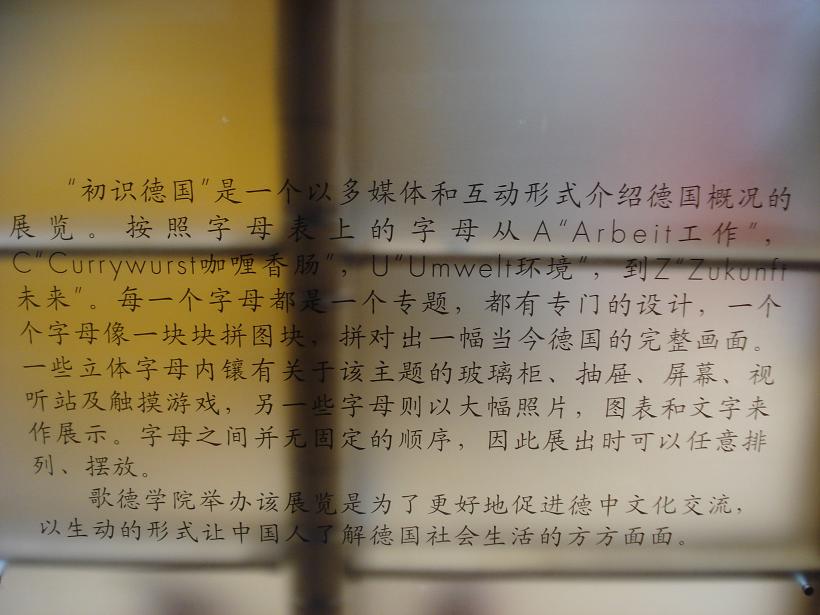 “初识德国”是一个以多媒体和互动形式介绍德国概况的
展览。按照字母表上的字母从A“Arbeit工作”，
C“Currywurst咖喱香肠”，U“Umwelt环境”，到Z“Zukunft
未来”。每一个字母都是一个专题，都有专门的设计，一个
个字母像一块块拼图块，拼对出一幅当今德国的完整画面。
一些立体字母内镶有关于该主题的玻璃柜、抽屉、屏幕、视
听站及触摸游戏，另一些字母则以大幅照片，图表和文字来
作展示。字母之间并无固定的顺序，因此展出时可以任意排
列、摆放。
歌德学院举办该展览是为了更好地促进德中文化交流，
以生动的形式让中国人了解德国社会生活的方方面面。